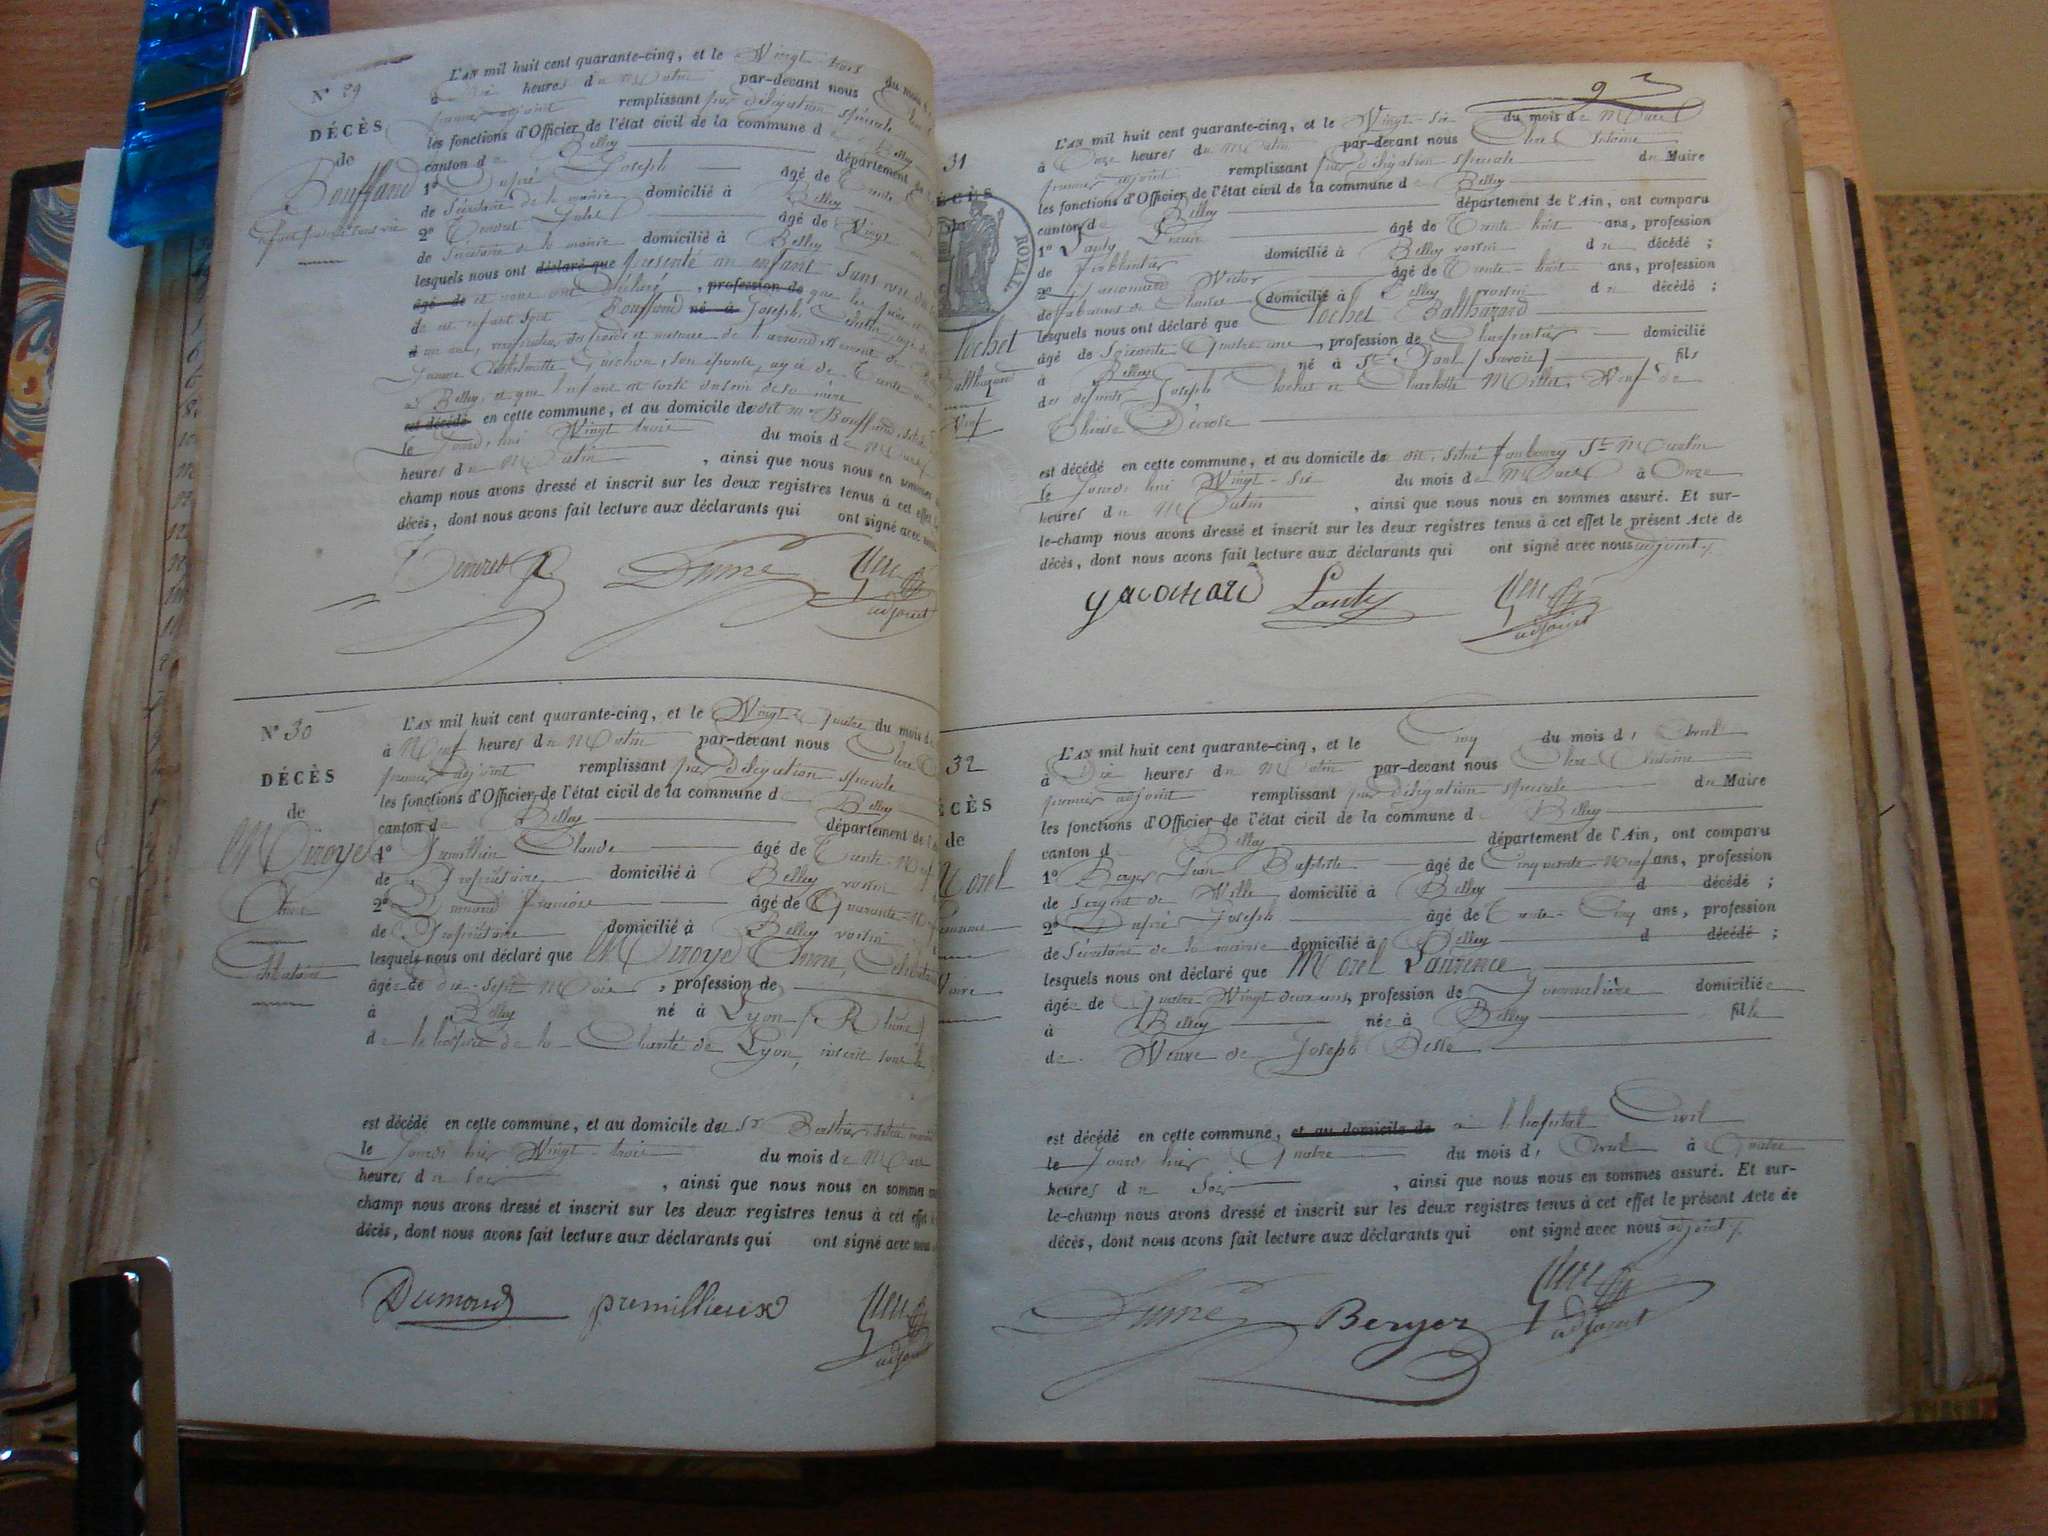 N° 29
DÉCÈS
de
Bouffand
L'AN mil huit cent quarante-cinq, et le Vingt-trois du mois
à Dix heures du Matin par-devant nous
premier adjoint remplissant par délégation spéciale
les fonctions d'Officier de l'état civil de la commune de Belley
canton de Belley département
1° Dupré Joseph âgé de Trente
de Sécrétaire de la mairie domicilié à Belley
2° âgé de Vingt
de Sécrétaire de la mairie domicilié à Belley
lesquels nous ont déclaré que présenté un enfant sans vie
âgé de et nous ont déclaré, profession de que les père et
de cet enfant sont Bouffand né à Joseph
vérificateur des poids et mesures de l'arrond
Guichon, son épouse, agée de Trente
à Belley, et que l'enfant est sorti du sein de sa mère
est décédé en cette commune, et au domicile de dit Mr Bouffand, situé
le jourd'hui Vingt trois du mois de Mars
heures du Matin, ainsi que nous nous en sommes
champ nous avons dressé et inscrit sur les deux registres tenus à cet effet
décès, dont nous avons fait lecture aux déclarants qui ont signé avec nous
adjoint
N° 30
DÉCÈS
de
Miroye
Anne
Célibataire
L'AN mil huit cent quarante-cinq, et le Vingt-Quatre du mois de
à Neuf heures du Matin par-devant nous Clerc
premier adjoint remplissant par délégation spéciale
les fonctions d'Officier de l'état civil de la commune de Belley
canton de Belley département de l'A
1° Claude âgé de Trente-Neuf
de Propriétaire domicilié à Belley voisin
2° Dumond François âgé de Quarante
de Propriétaire domicilié à Belley voisin
lesquels nous ont déclaré que Miroye Anne, Célibataire
âgée de dix-sept Mois, profession de
à Belley né à Lyon (Rhône)
de l'hospice de la Charité de Lyon, inscrit sous le
est décédé en cette commune, et au domicile du Sr
le jourd'hier Vingt-trois du mois de Mars
heures du soir, ainsi que nous nous en sommes
champ nous avons dressé et inscrit sur les deux registres tenus à cet effet
décès, dont nous avons fait lecture aux déclarants qui ont signé avec nous
Dumond premillieux
adjoint
9
31
DÉCÈS
ROYAL
Clochet
Balthazard
Veuf
L'AN mil huit cent quarante-cinq, et le Vingt-Six du mois de Mars
à Onze heures du Matin par-devant nous Clerc Antoine
premier adjoint remplissant par délégation spéciale du Maire
les fonctions d'Officier de l'état civil de la commune de Belley
canton de Belley département de l'Ain, ont comparu
1° Lauty âgé de Trente huit ans, profession
de Ferblantier domicilié à Belley voisin du décédé ;
2° Victor âgé de Trente-huit ans, profession
de fabricant de domicilié à Belley voisin du décédé ;
lesquels nous ont déclaré que Clochet Balthazard
âgé de Soixante Quatre ans, profession de Charpentier domicilié
à Belley né à St Paul (Savoie) fils
des défunts Joseph Clochet et Charlotte Millet, Veuf de
Thérèse
est décédé en cette commune, et au domicile de dit, situé faubourg St Martin
le jourd'hui Vingt-Six du mois de Mars à Onze
heures du Matin, ainsi que nous nous en sommes assuré. Et sur-
le-champ nous avons dressé et inscrit sur les deux registres tenus à cet effet le présent Acte de
décès, dont nous avons fait lecture aux déclarants qui ont signé avec nous adjoint
Lauty
adjoint
32
DÉCÈS
de
Morel
Laurence
L'AN mil huit cent quarante-cinq, et le Cinq du mois d'Avril
à Dix heures du Matin par-devant nous Clerc Antoine
premier adjoint remplissant par délégation spéciale du Maire
les fonctions d'Officier de l'état civil de la commune de Belley
canton d Belley département de l'Ain, ont comparu
1° Berger Jean Baptiste âgé de Cinquante-Neuf ans, profession
de Sergent de Ville domicilié à Belley d décédé ;
2° Dupré Joseph âgé de Trente-Cinq ans, profession
de Sécrétaire de la mairie domicilié à Belley d décédé ;
lesquels nous ont déclaré que Morel Laurence
âgée de Quatre Vingt deux ans, profession de Journalière domiciliée
à Belley née à Belley fille
de Veuve de Joseph
est décédé en cette commune, et au domicile de à l'hopital Civil
le jourd'hier Quatre du mois d'Avril à Quatre
heures du Soir, ainsi que nous nous en sommes assuré. Et sur-
le-champ nous avons dressé et inscrit sur les deux registres tenus à cet effet le présent Acte de
décès, dont nous avons fait lecture aux déclarants qui ont signé avec nous adjoint
Berger
adjoint